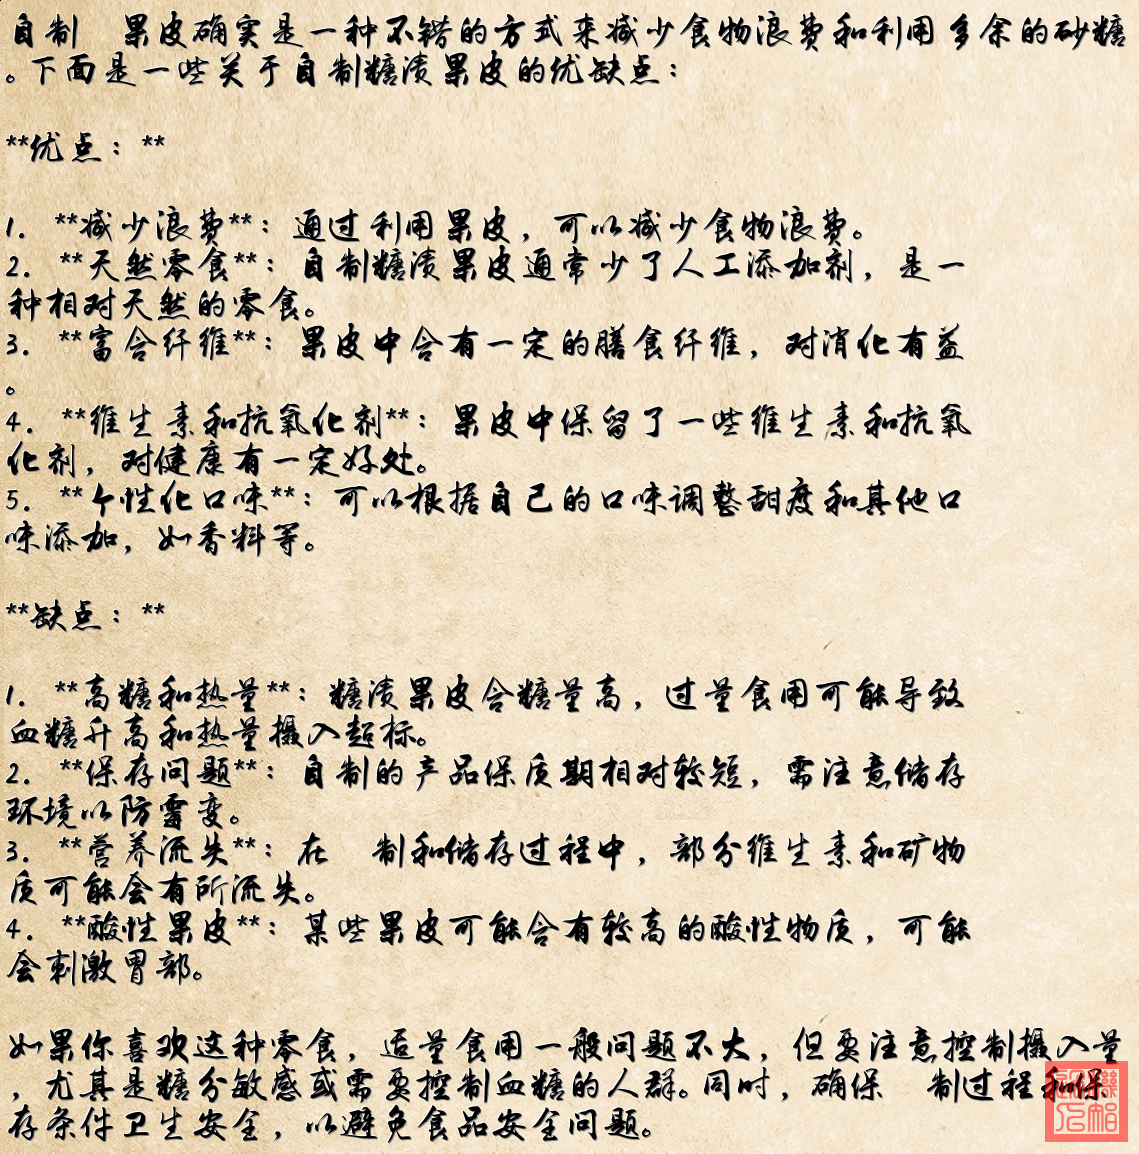 自制　果皮确实是一种不错的方式来减少食物浪费和利用多余的砂糖
。下面是一些关于自制糖渍果皮的优缺点：
**优点：**
1. **减少浪费**：通过利用果皮，可以减少食物浪费。
2. **天然零食**：自制糖渍果皮通常少了人工添加剂，是一
种相对天然的零食。
3. **富含纤维**：果皮中含有一定的膳食纤维，对消化有益
。
4. **维生素和抗氧化剂**：果皮中保留了一些维生素和抗氧
化剂，对健康有一定好处。
5. **个性化口味**：可以根据自己的口味调整甜度和其他口
味添加，如香料等。
**缺点：**
1. **高糖和热量**：糖渍果皮含糖量高，过量食用可能导致
血糖升高和热量摄入超标。
2. **保存问题**：自制的产品保质期相对较短，需注意储存
环境以防霉变。
3. **营养流失**：在　制和储存过程中，部分维生素和矿物
质可能会有所流失。
4. **酸性果皮**：某些果皮可能含有较高的酸性物质，可能
会刺激胃部。
如果你喜欢这种零食，适量食用一般问题不大，但要注意控制摄入量
，尤其是糖分敏感或需要控制血糖的人群。同时，确保　制过程和保
存条件卫生安全，以避免食品安全问题。